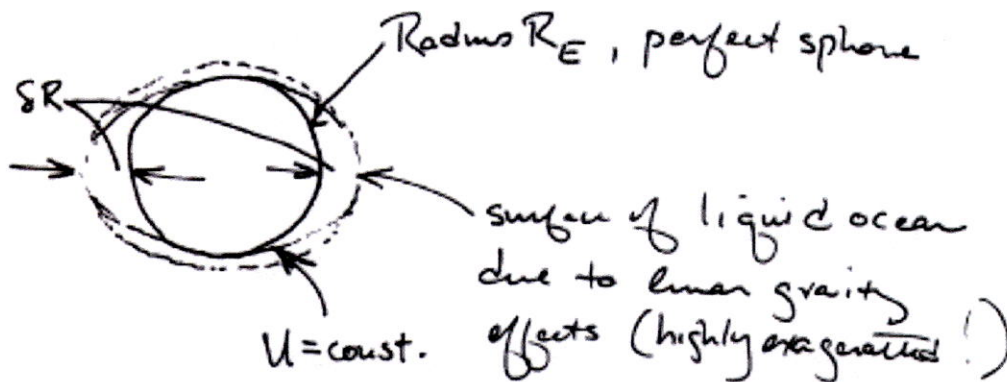 Radius R_E, perfect sphere
δR
surface of liquid ocean
due to lunar gravity
effects (highly exagerated!)
U = const.